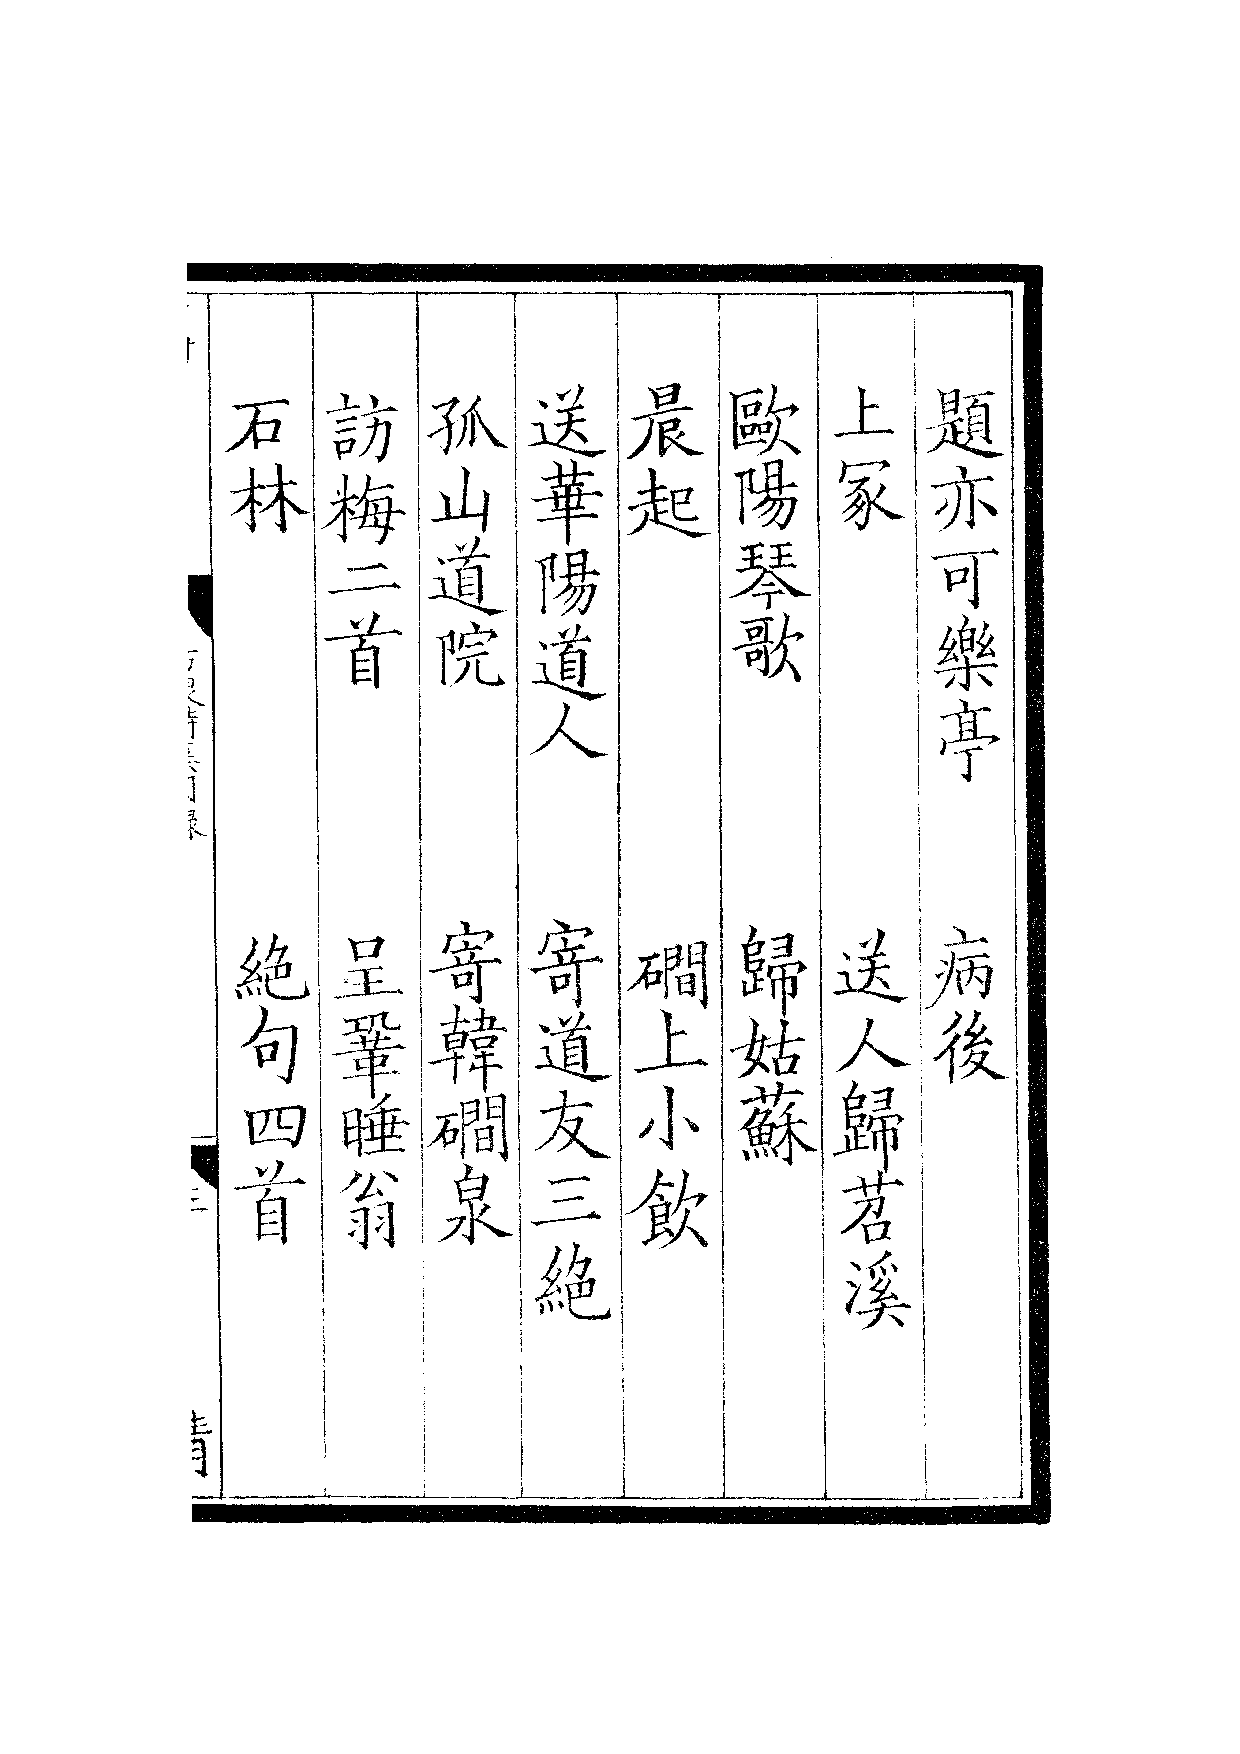 題亦可樂亭 病後
上冢 送人歸苕溪
歐陽琴歌 歸姑蘇
晨起 磵上小飲
送華陽道人 寄道友三絶
孤山道院 寄韓磵泉
訪梅二首 呈鞏睡翁
石林 絶句四首